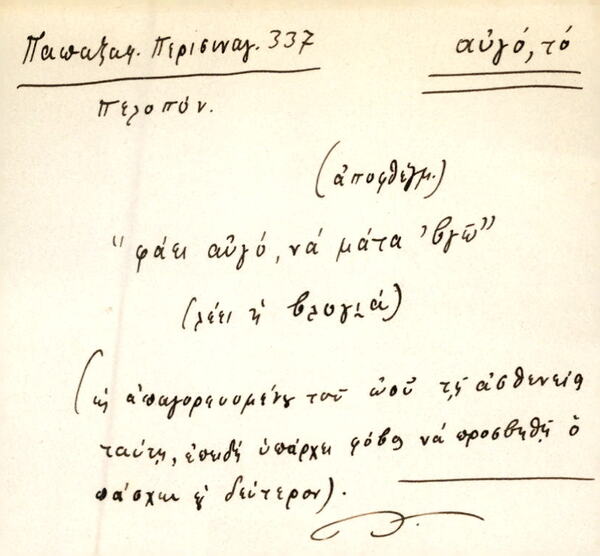 Παπαζαφ. Περισυναγ. 337
αὐγό, τό
Πελοπόν.
(ἀποφθέγμ.)
"φάει αὐγό, νά μάτα 'βγῶ"
(λέει ἡ βλογιά)
(ὡς ἀπαγορευομένου τοῦ ὠοῦ τῇ ἀσθενείᾳ
ταύτῃ, ἐπειδή ὑπάρχει φόβος νά προσβληθῇ ὁ
πάσχων ἐκ δευτέρου).